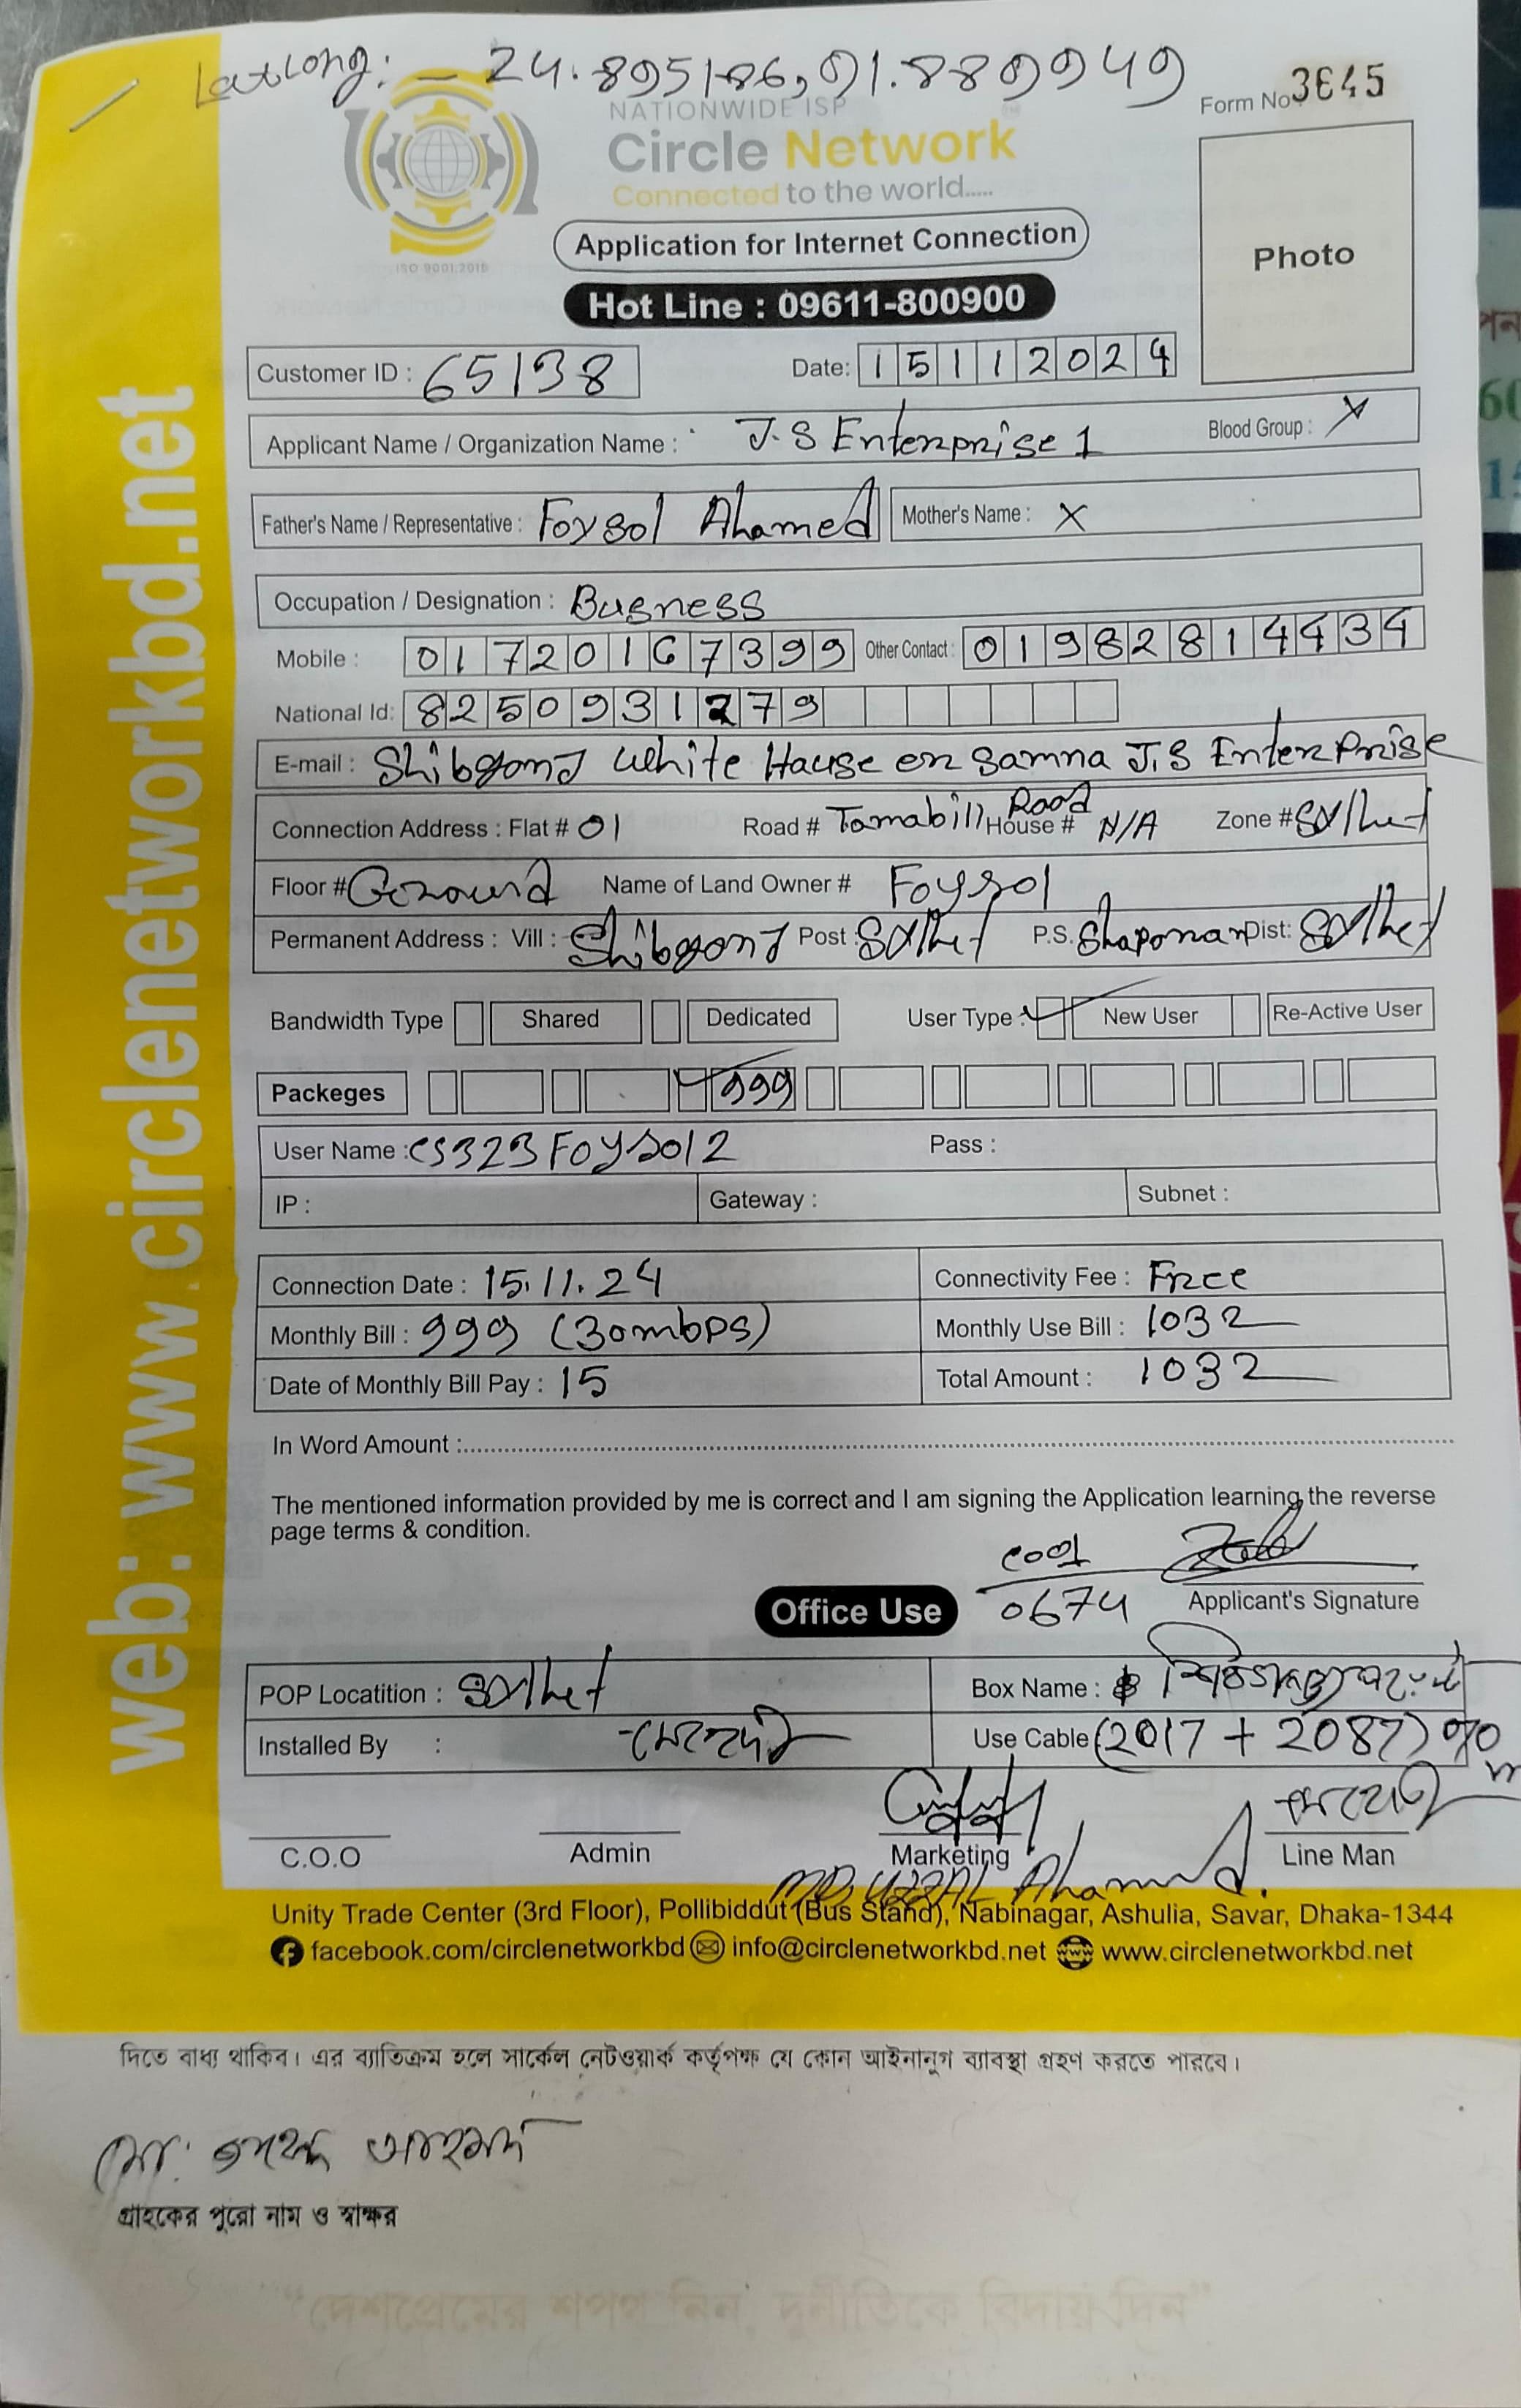 LatLong: - 24.895186, 91.889949
Form No 3645
NATIONWIDE ISP
Circle Network
Connected to the world.....
ISO 9001:2015
Application for Internet Connection
Photo
Hot Line : 09611-800900
Customer ID : 65138 Date: 15112024
Applicant Name / Organization Name : J.S Enterprise 1 Blood Group : X
Father's Name / Representative : Foysol Ahamed Mother's Name : X
Occupation / Designation : Busness
Mobile : 01720167399 Other Contact : 01982814434
National Id: 8250931279
E-mail : Shibgonj White Hause er Samna J.S Enterprise
Connection Address : Flat # 01 Road # Tamabill Road House # N/A Zone # Sylhet
Floor # Ground Name of Land Owner # Foysol
Permanent Address : Vill : Shibgonj Post : Sylhet P.S. Shaporan Dist: Sylhet
Bandwidth Type Shared Dedicated User Type : New User Re-Active User
Packeges 999
User Name : CS323Foysol2 Pass :
IP : Gateway : Subnet :
Connection Date : 15.11.24 Connectivity Fee : Free
Monthly Bill : 999 (30mbps) Monthly Use Bill : 1032
Date of Monthly Bill Pay : 15 Total Amount : 1032
In Word Amount :
The mentioned information provided by me is correct and I am signing the Application learning the reverse
page terms & condition.
0674
Office Use Applicant's Signature
POP Locatition : Sylhet Box Name :
Installed By : Use Cable (2017 + 2087) 70 m
C.O.O Admin Marketing Line Man
MD. UZZAL Ahamed.
Unity Trade Center (3rd Floor), Pollibiddut (Bus Stand), Nabinagar, Ashulia, Savar, Dhaka-1344
facebook.com/circlenetworkbd info@circlenetworkbd.net www.circlenetworkbd.net
web: www.circlenetworkbd.net
দিতে বাধ্য থাকিব। এর ব্যাতিক্রম হলে সার্কেল নেটওয়ার্ক কর্তৃপক্ষ যে কোন আইনানুগ ব্যাবস্থা গ্রহণ করতে পারবে।
মো: আহমদ
গ্রাহকের পুরো নাম ও স্বাক্ষর
"দেশপ্রেমের শপথ নিন, দুর্নীতিকে বিদায় দিন"